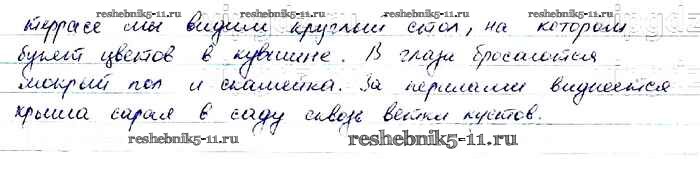 reshebnik5-11.ru reshebnik5-11.ru
террасе мы видим круглый стол, на котором
букет цветов в кувшине. В глаза бросаются
мокрый пол и скамейка. За перилами виднеется
крыша сарая в саду сквозь ветки кустов.
reshebnik5-11.ru reshebnik5-11.ru